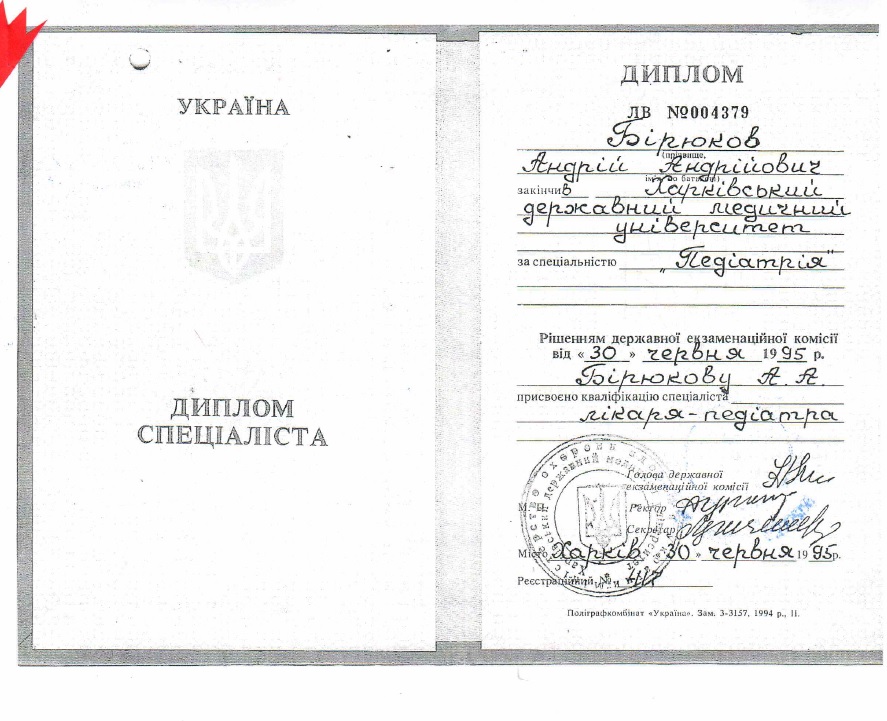 УКРАЇНА
ДИПЛОМ
СПЕЦІАЛІСТА
ДИПЛОМ
ЛВ №004379
Бірюков
(прізвище,
Андрій Андрійович
ім'я, по батькові)
закінчив Харківський
державний медичний
університет
за спеціальністю „Педіатрія"
Рішенням державної екзаменаційної комісії
від « 30 » червня 1995 р.
Бірюкову А. А.
присвоєно кваліфікацію спеціаліста
лікаря-педіатра
Голова державної
екзаменаційної комісії
М. П. Ректор
Секретар
Місто Харків « 30 » червня 1995 р.
Реєстраційний №
Поліграфкомбінат «Україна». Зам. 3-3157, 1994 р., II.